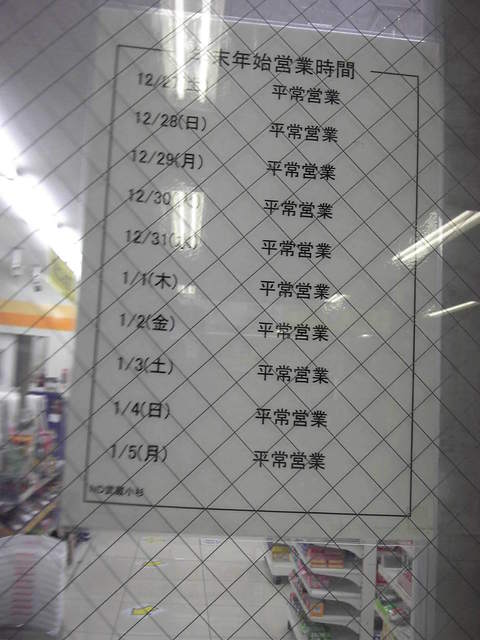 年末年始営業時間
12/27(土) 平常営業
12/28(日) 平常営業
12/29(月) 平常営業
12/30(火) 平常営業
12/31(水) 平常営業
1/1(木) 平常営業
1/2(金) 平常営業
1/3(土) 平常営業
1/4(日) 平常営業
1/5(月) 平常営業
武蔵小杉